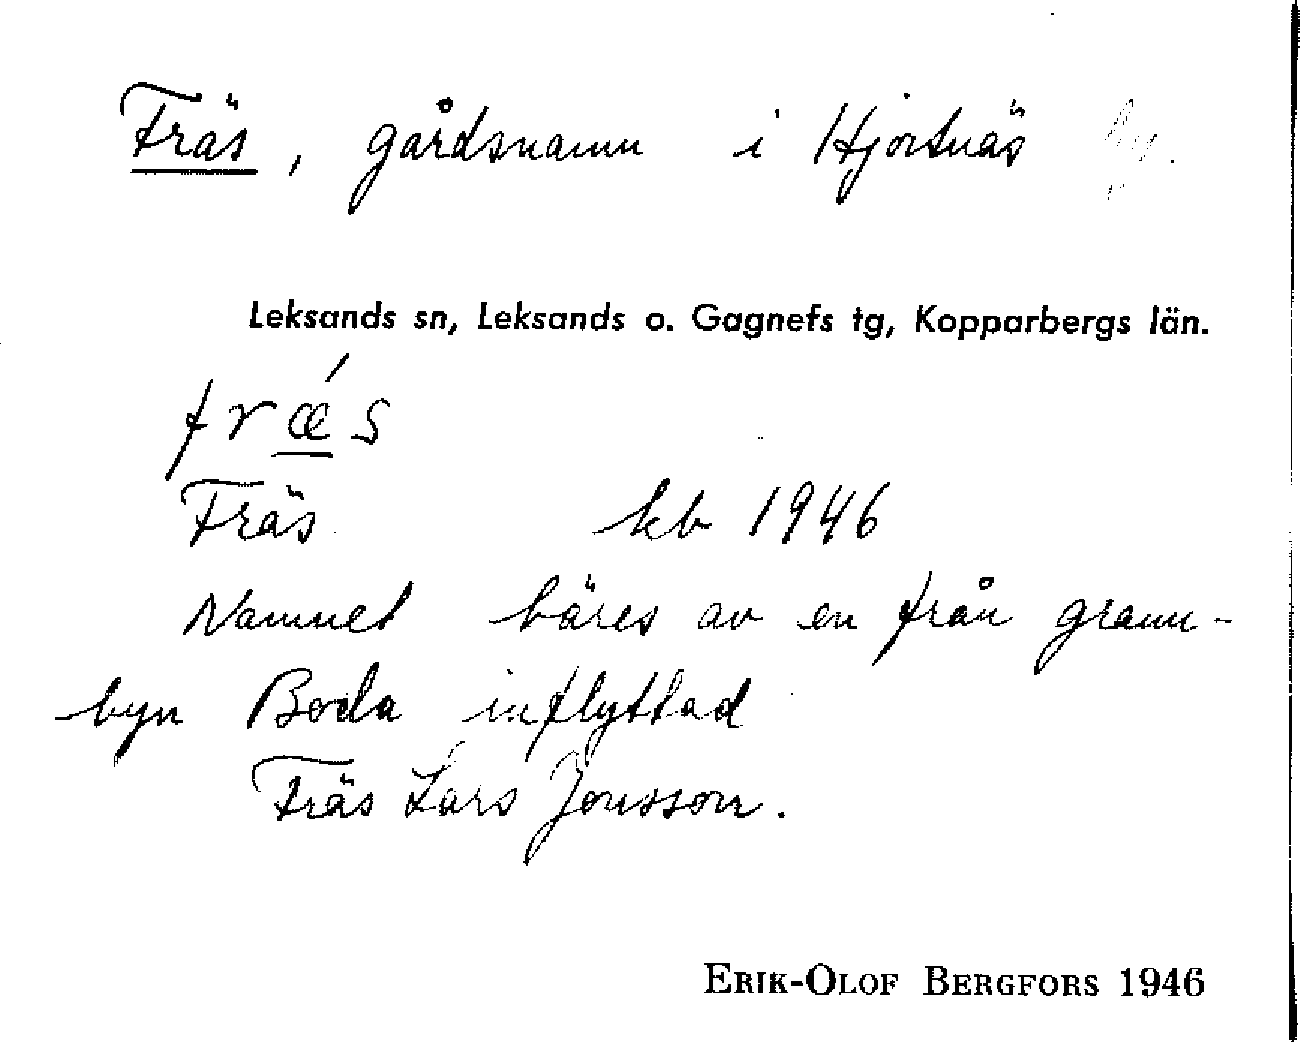 Fräs, gårdsnamn i Hjortnäs by.
Leksands sn, Leksands o. Gagnefs tg, Kopparbergs län.
frǽs
Fräs kb 1946
Namnet bäres av en från grann-
byn Boda inflyttad
Fräs Lars Jonsson.
ERIK-OLOF BERGFORS 1946